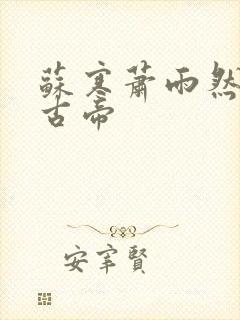 蘇寒蕭雨然
古帝
安宰賢